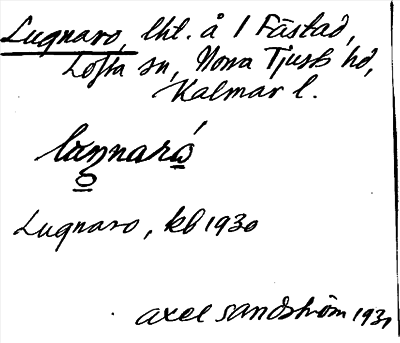 Lugnaro, lht. å 1 Fästad,
Lofta sn, Norra Tjusts hd,
Kalmar l.
Lugnaro, kb 1930
Axel Sandström 1931